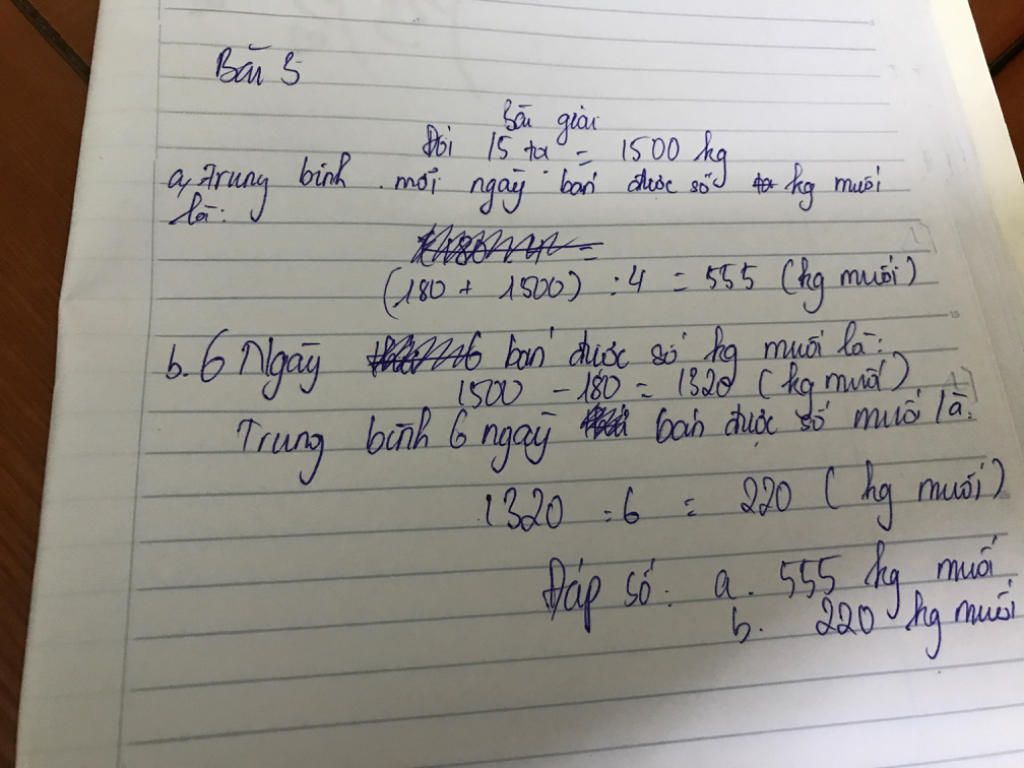 Bài 5
Bài giải
Đổi 15 tạ = 1500 kg
a, Trung bình mỗi ngày bán được số kg muối
là:
(180 + 1500) : 4 = 555 (kg muối)
b. 6 Ngày bán được số kg muối là:
1500 - 180 = 1320 (kg muối)
Trung bình 6 ngày bán được số muối là:
1320 : 6 = 220 (kg muối)
Đáp số: a. 555 kg muối
b. 220 kg muối